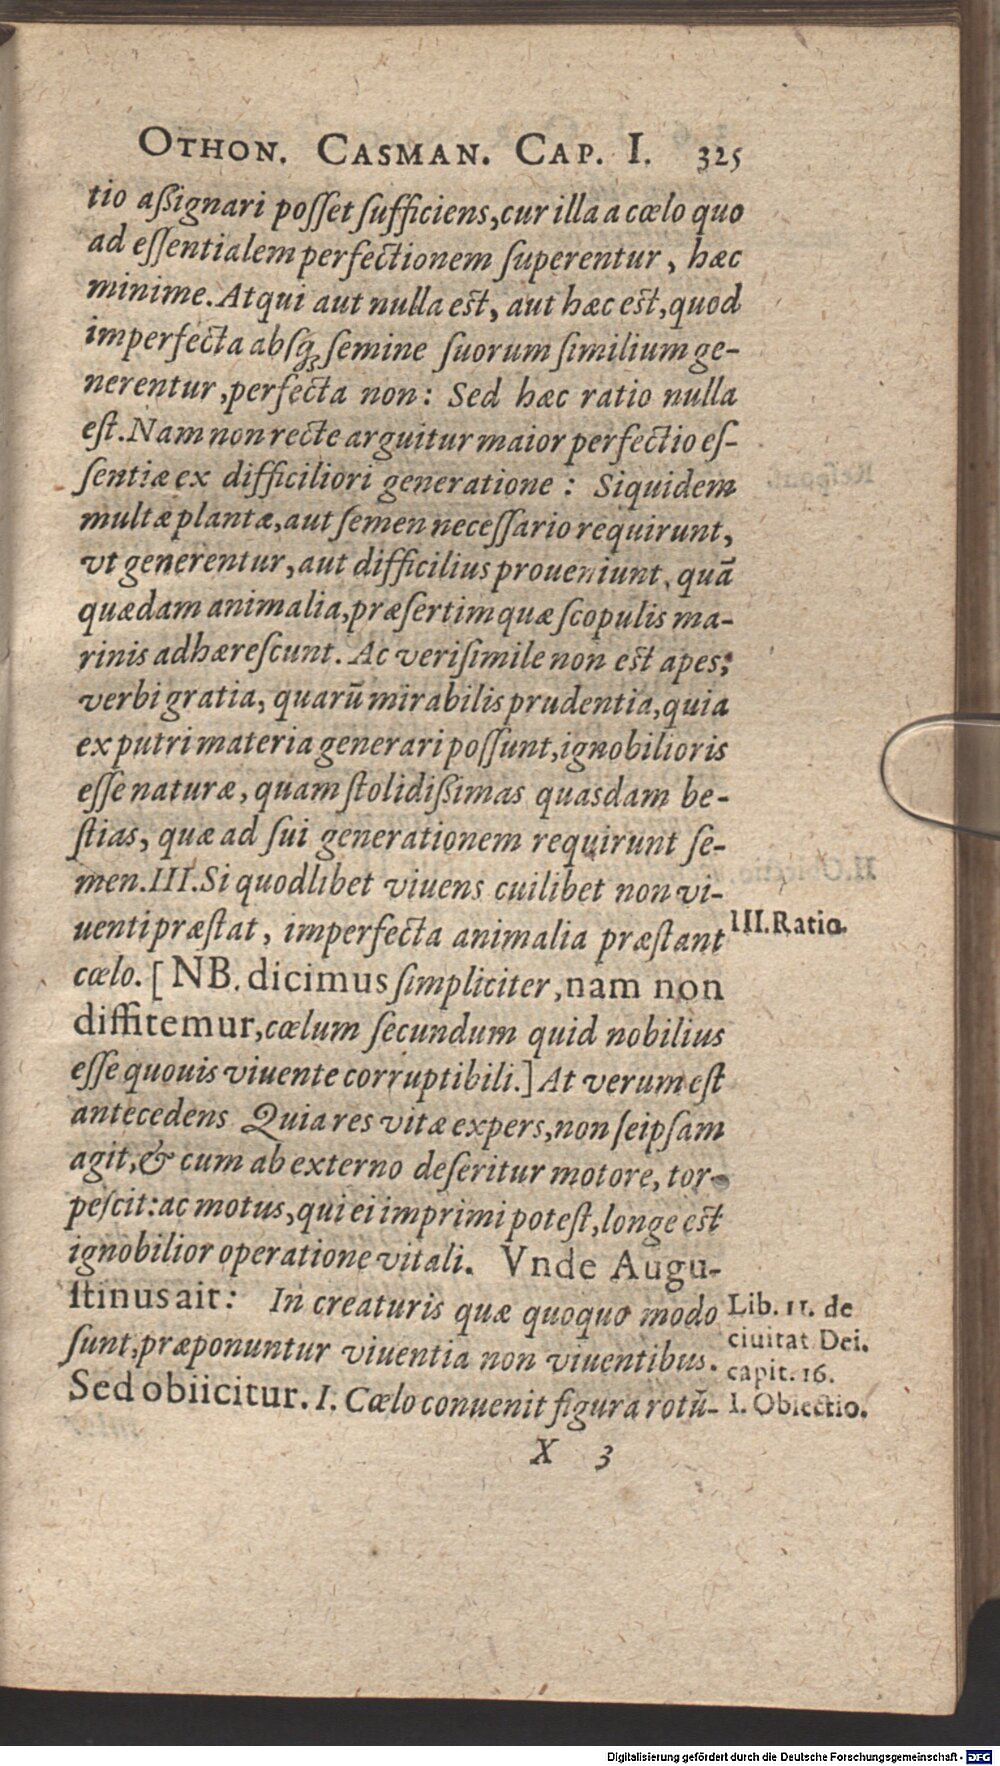 OTHON. CASMAN. CAP. I. 325
tio aßignari poſſet ſufficiens, cur illa a cœlo quo
ad eſſentialem perfectionem ſuperentur, hæc
minime. Atqui aut nulla est, aut hæc est, quod
imperfecta abſq; ſemine ſuorum ſimilium ge-
nerentur, perfecta non: Sed hæc ratio nulla
eſt. Nam non recte arguitur maior perfectio eſ-
ſentiæ ex difficiliori generatione: Siquidem
multæ plantæ, aut ſemen neceſſario requirunt,
vt generentur, aut difficilius proueniunt, quā
quædam animalia, præſertim quæ ſcopulis ma-
rinis adhæreſcunt. Ac veriſimile non est apes;
verbi gratia, quarū mirabilis prudentia, quia
ex putri materia generari poſſunt, ignobilioris
eſſe naturæ, quam ſtolidißimas quasdam be-
ſtias, quæ ad ſui generationem requirunt ſe-
men. III. Si quodlibet viuens cuilibet non vi-
uenti præſtat, imperfecta animalia præſtant
III. Ratio.
cœlo. [NB. dicimus ſimpliciter, nam non
diffitemur, cœlum ſecundum quid nobilius
eſſe quouis viuente corruptibili.] At verum eſt
antecedens Quia res vitæ expers, non ſeipſam
agit, & cum ab externo deſeritur motore, tor-
peſcit: ac motus, qui ei imprimi poteſt, longe est
ignobilior operatione vitali. Vnde Augu-
ſtinus ait: In creaturis quæ quoquo modo
ſunt, præponuntur viuentia non viuentibus.
Lib. 11. de
ciuitat Dei.
capit. 16.
Sed obiicitur. I. Cœlo conuenit figura rotū-
I. Obiectio.
X 3
Digitalisierung gefördert durch die Deutsche Forschungsgemeinschaft - DFG